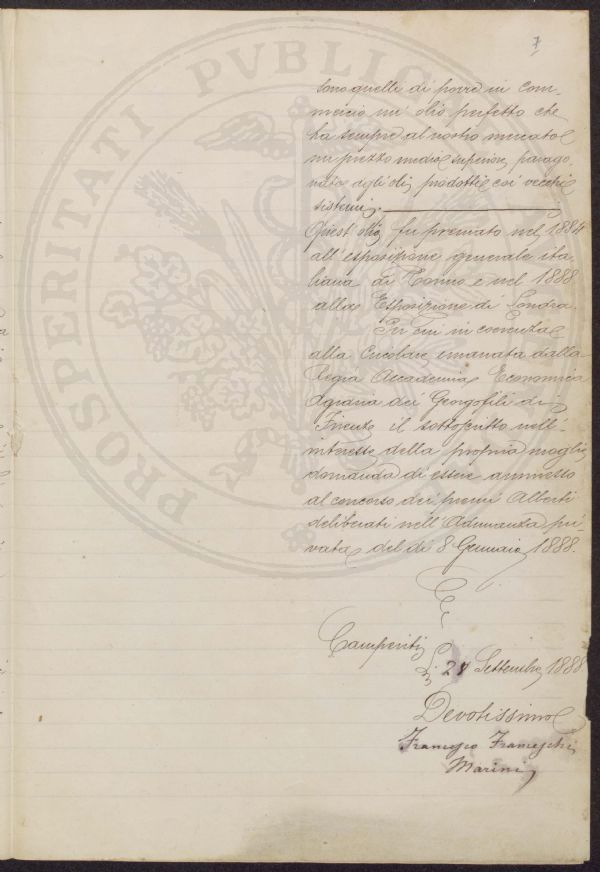 7
sono quelli di porre in com-
mercio un' olio perfetto che
ha sempre al nostro mercato
un prezzo medio superiore parago
nato agli oli prodotti coi vecchi
sistemi.
Quest'olio fu premiato nel 1884
all'esposizione generale ita
liana di Torino e nel 1888
alla Esposizione di Londra.
Per cui in coerenza
alla Circolare emanata dalla
Regia Accademia Economica
Agraria dei Georgofili di
Firenze il sottoscritto nell'-
interesse della propria moglie
domanda di essere ammesso
al concorso dei premi Alberti
deliberati nell'Adunanza pri-
vata del dì 8 Gennaio 1888.
Camperiti
Li 28 Settembre 1888
Devotissimo
Francesco Franceschi
Marini
PROSPERITATI PVBLICAE